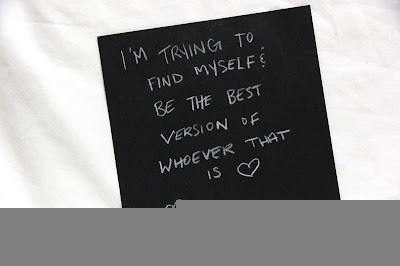 I'M TRYING TO
FIND MYSELF &
BE THE BEST
VERSION OF
WHOEVER THAT
IS ♡